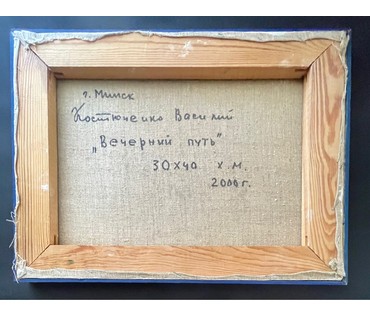 г. Минск
Костюченко Василий
„Вечерний путь"
30х40 х.м.
2000г.